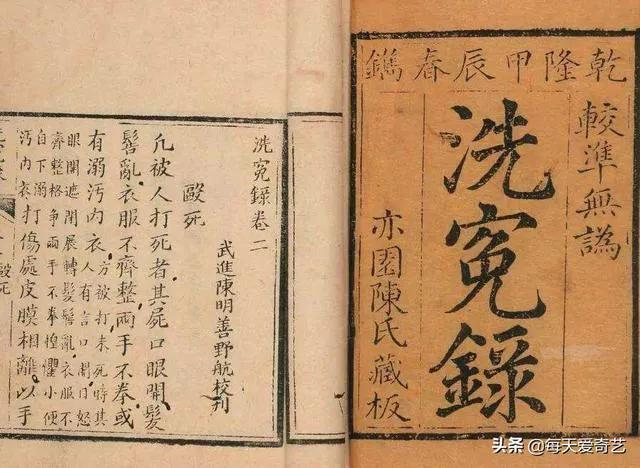 乾隆甲辰春鐫
較準無譌
洗寃錄
亦園陳氏藏板
洗寃錄卷二
武進陳明善野航校刊
毆死
凡被人打死者其屍口眼開髮
髻亂衣服不齊整兩手不拳或
有溺汚內衣方被打未死時其人有言口開曰怒
眼開遮閉展轉髮髻亂衣服不
齊整格爭兩手不拳惶懼小便
自下溺汚內衣打傷處皮膜相離以手
毆死
头条 @每天爱奇艺